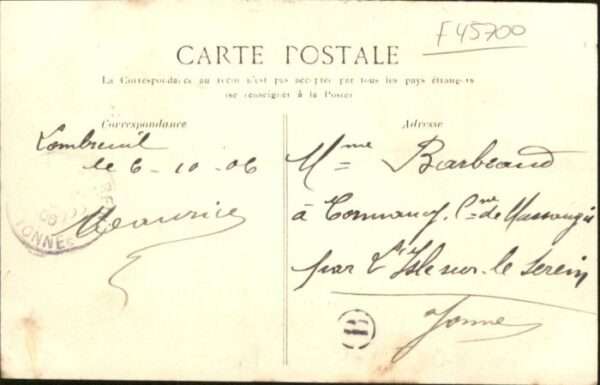 F45700
CARTE POSTALE
La Correspondance au recto n'est pas acceptée par tous les pays étrangers
(se renseigner à la Poste)
Correspondance
Adresse
le 6-10-06
Maurice
Mme Barbeaud
à Tormancy Cne de Massangis
par L'Isle-sur-le Serein
Yonne
YONNE
B